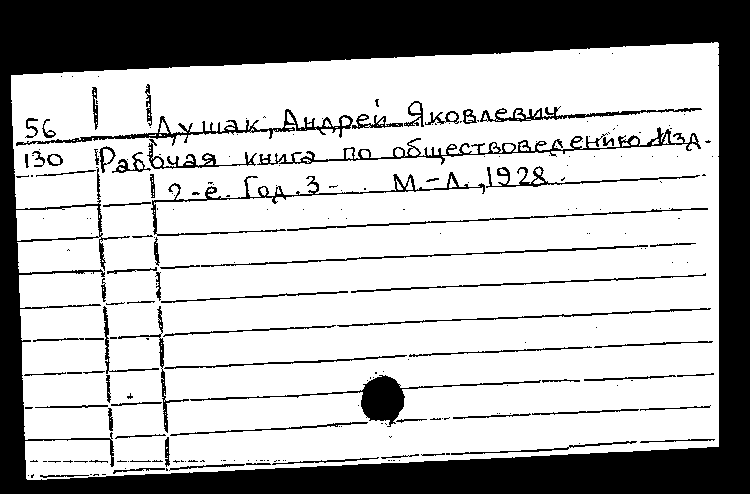 56 Душак, Андрей Яковлевич
130 Рабочая книга по обществоведению. Изд.
2-е. Год. 3- М.-Л., 1928.